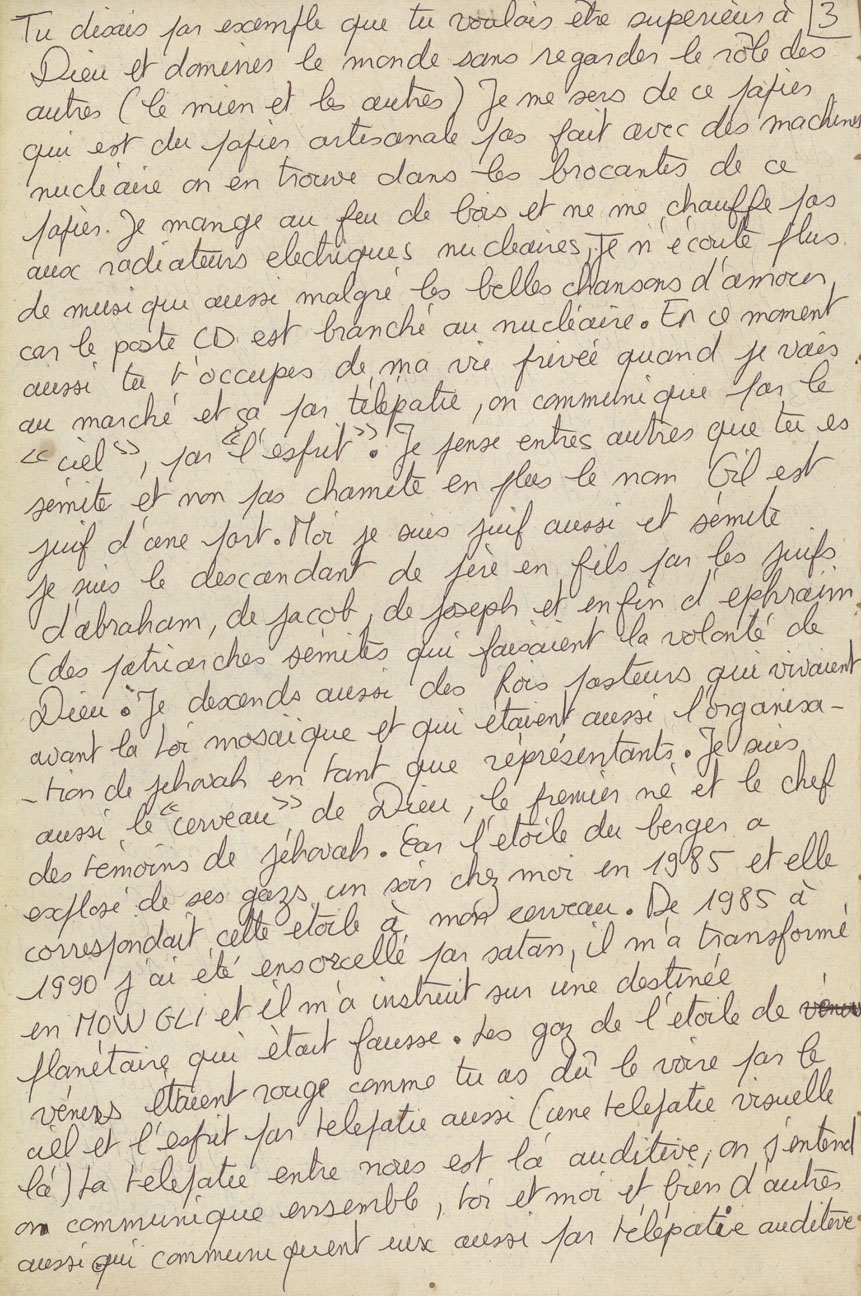 Tu disais par exemple que tu voulais être superieur à 3
Dieu et dominer le monde sans regarder le rôle des
autres (le mien et les autres) Je me sers de ce papier
qui est du papier artisanale pas fait avec des machines
nucléaire on en trouve dans les brocantes de ce
papier. Je mange au feu de bois et ne me chauffe pas
aux radiateurs electriques nucleaires, Je n'écoute plus
de musique aussi malgré les belles chansons d'amour,
car le poste CD est branché au nucléaire. En ce moment
aussi tu t'occupes de ma vie privée quand je vais
au marché et ça par télépatie, on communique par le
"ciel", par "l'esprit". Je pense entres autres que tu es
sémite et non pas chamite en plus le nom Gil est
juif d'une part. Moi je suis juif aussi et sémite
je suis le descendant de père en fils par les juifs
d'abraham, de jacob, de joseph et enfin d'ephraïm
(des patriarches sémites qui faisaient la volonté de
Dieu. Je descends aussi des Rois pasteurs qui vivaient
avant la Loi mosaïque et qui étaient aussi l'organisa-
-tion de jehovah en tant que réprésentants. Je suis
aussi le "cerveau" de Dieu, le premier né et le chef
des témoins de jéhovah. Car l'étoile du berger a
explosé de ses gazs un soir chez moi en 1985 et elle
correspondait cette etoile à mon cerveau. De 1985 à
1990 j'ai été ensorcellé par satan, il m'a transformé
en MOWGLI et il m'a instruit sur une destinée
planétaire qui était fausse. Les gaz de l'étoile de vénus
vénus étaient rouge comme tu as dû le voire par le
ciel et l'esprit par telepatie aussi (une telepatie visuelle
là) La télepatie entre nous est là auditive, on s'entend
on communique ensemble, toi et moi et bien d'autres
aussi qui communiquent eux aussi par télépatie auditive